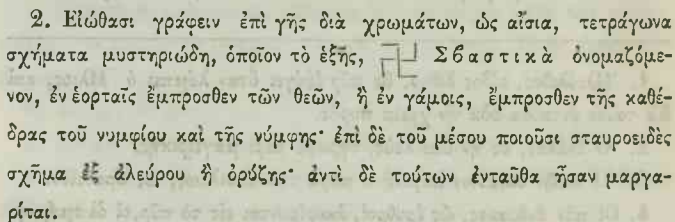 2. Εἰώθασι γράφειν ἐπὶ γῆς διὰ χρωμάτων, ὡς αἴσια, τετράγωνα
σχήματα μυστηριώδη, ὁποῖον τὸ ἑξῆς, 卐 Σβαστικὰ ὀνομαζόμε-
νον, ἐν ἑορταῖς ἔμπροσθεν τῶν θεῶν, ἢ ἐν γάμοις, ἔμπροσθεν τῆς καθέ-
δρας τοῦ νυμφίου καὶ τῆς νύμφης· ἐπὶ δὲ τοῦ μέσου ποιοῦσι σταυροειδὲς
σχῆμα ἐξ ἀλεύρου ἢ ὀρύζης· ἀντὶ δὲ τούτων ἐνταῦθα ἦσαν μαργα-
ρῖται.